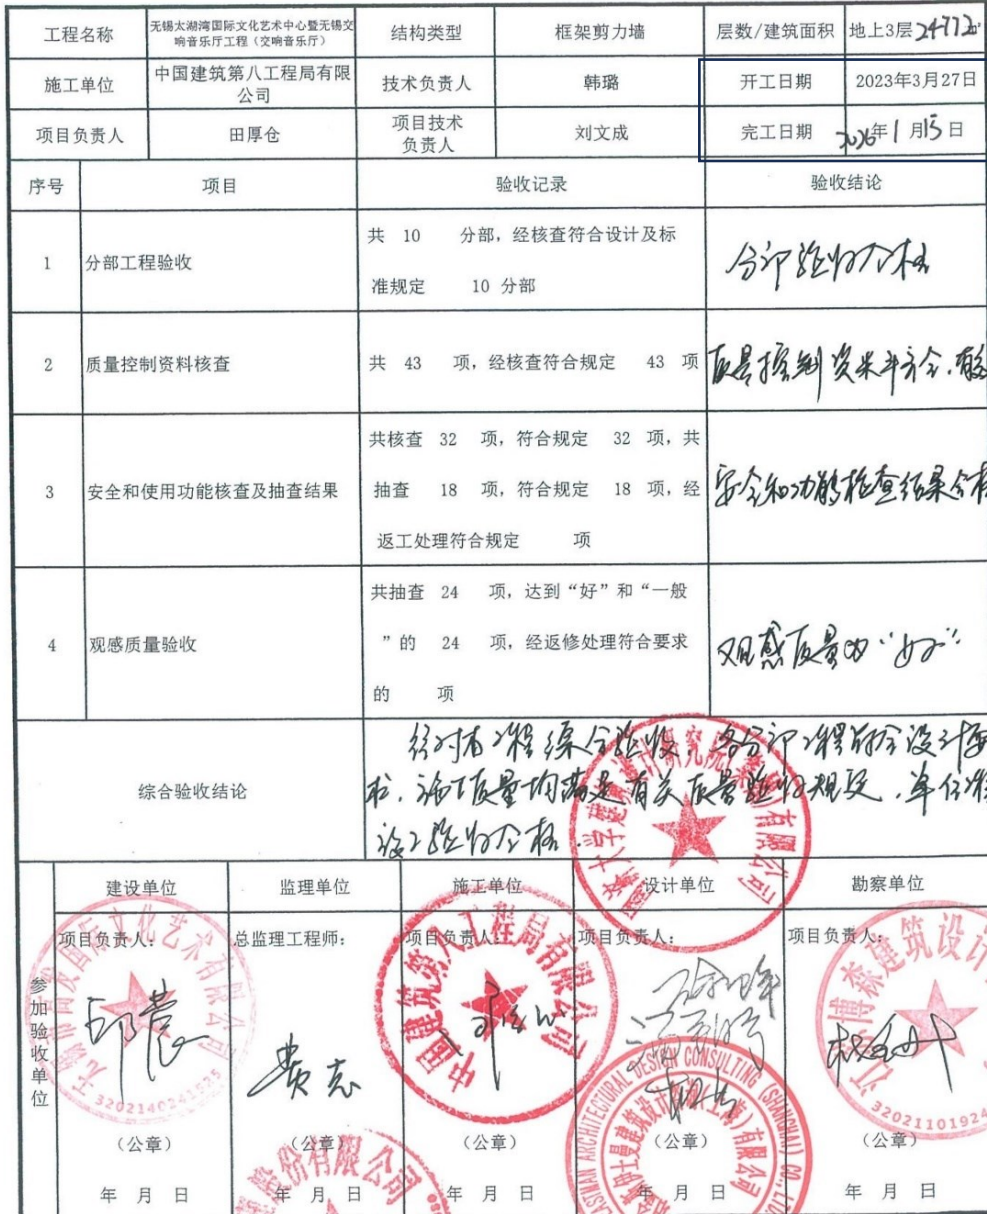 工程名称 无锡太湖湾国际文化艺术中心暨无锡交响音乐厅工程（交响音乐厅） 结构类型 框架剪力墙 层数/建筑面积 地上3层24772㎡
施工单位 中国建筑第八工程局有限公司 技术负责人 韩璐 开工日期 2023年3月27日
项目负责人 田厚仓 项目技术负责人 刘文成 完工日期 2026年1月15日
序号 项目 验收记录 验收结论
1 分部工程验收 共 10 分部，经核查符合设计及标
准规定 10 分部
分部验收合格
2 质量控制资料核查 共 43 项，经核查符合规定 43 项 质量控制资料齐全.有效
3 安全和使用功能核查及抽查结果 共核查 32 项，符合规定 32 项，共
抽查 18 项，符合规定 18 项，经
返工处理符合规定 项
安全和功能检查结果合格
4 观感质量验收 共抽查 24 项，达到“好”和“一般
”的 24 项，经返修处理符合要求
的 项
观感质量为“好”
综合验收结论 经对本工程综合验收，各分部工程符合设计要
求.施工质量均满足有关质量验收规范.单位工程
竣工验收合格.
参加验收单位
建设单位 监理单位 施工单位 设计单位 勘察单位
项目负责人： 总监理工程师： 项目负责人： 项目负责人： 项目负责人：
费志
中国建筑第八工程局有限公司
3202140241535
32021101924
ARCHITECTURAL DESIGN CONSULTING (SHANGHAI) CO., LTD
股份有限公司
（公章） （公章） （公章） （公章） （公章）
年 月 日 年 月 日 年 月 日 年 月 日 年 月 日